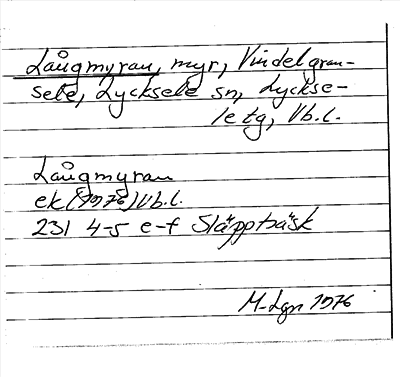 Långmyran, myr, Vindelgran-
sele, Lycksele sn, Lyckse-
le tg, Vb.l.
Långmyran
ek (1976) Vb.l.
23I 4-5 e-f Släppträsk
M-Lgn 1976